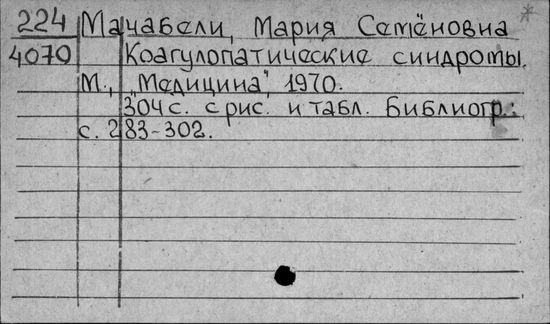 224 Мачабели, Мария Семёновна
4070 Коагулопатические синдромы.
М., „Медицина", 1970.
304 с. с рис. и табл. Библиогр.:
с. 283-302.